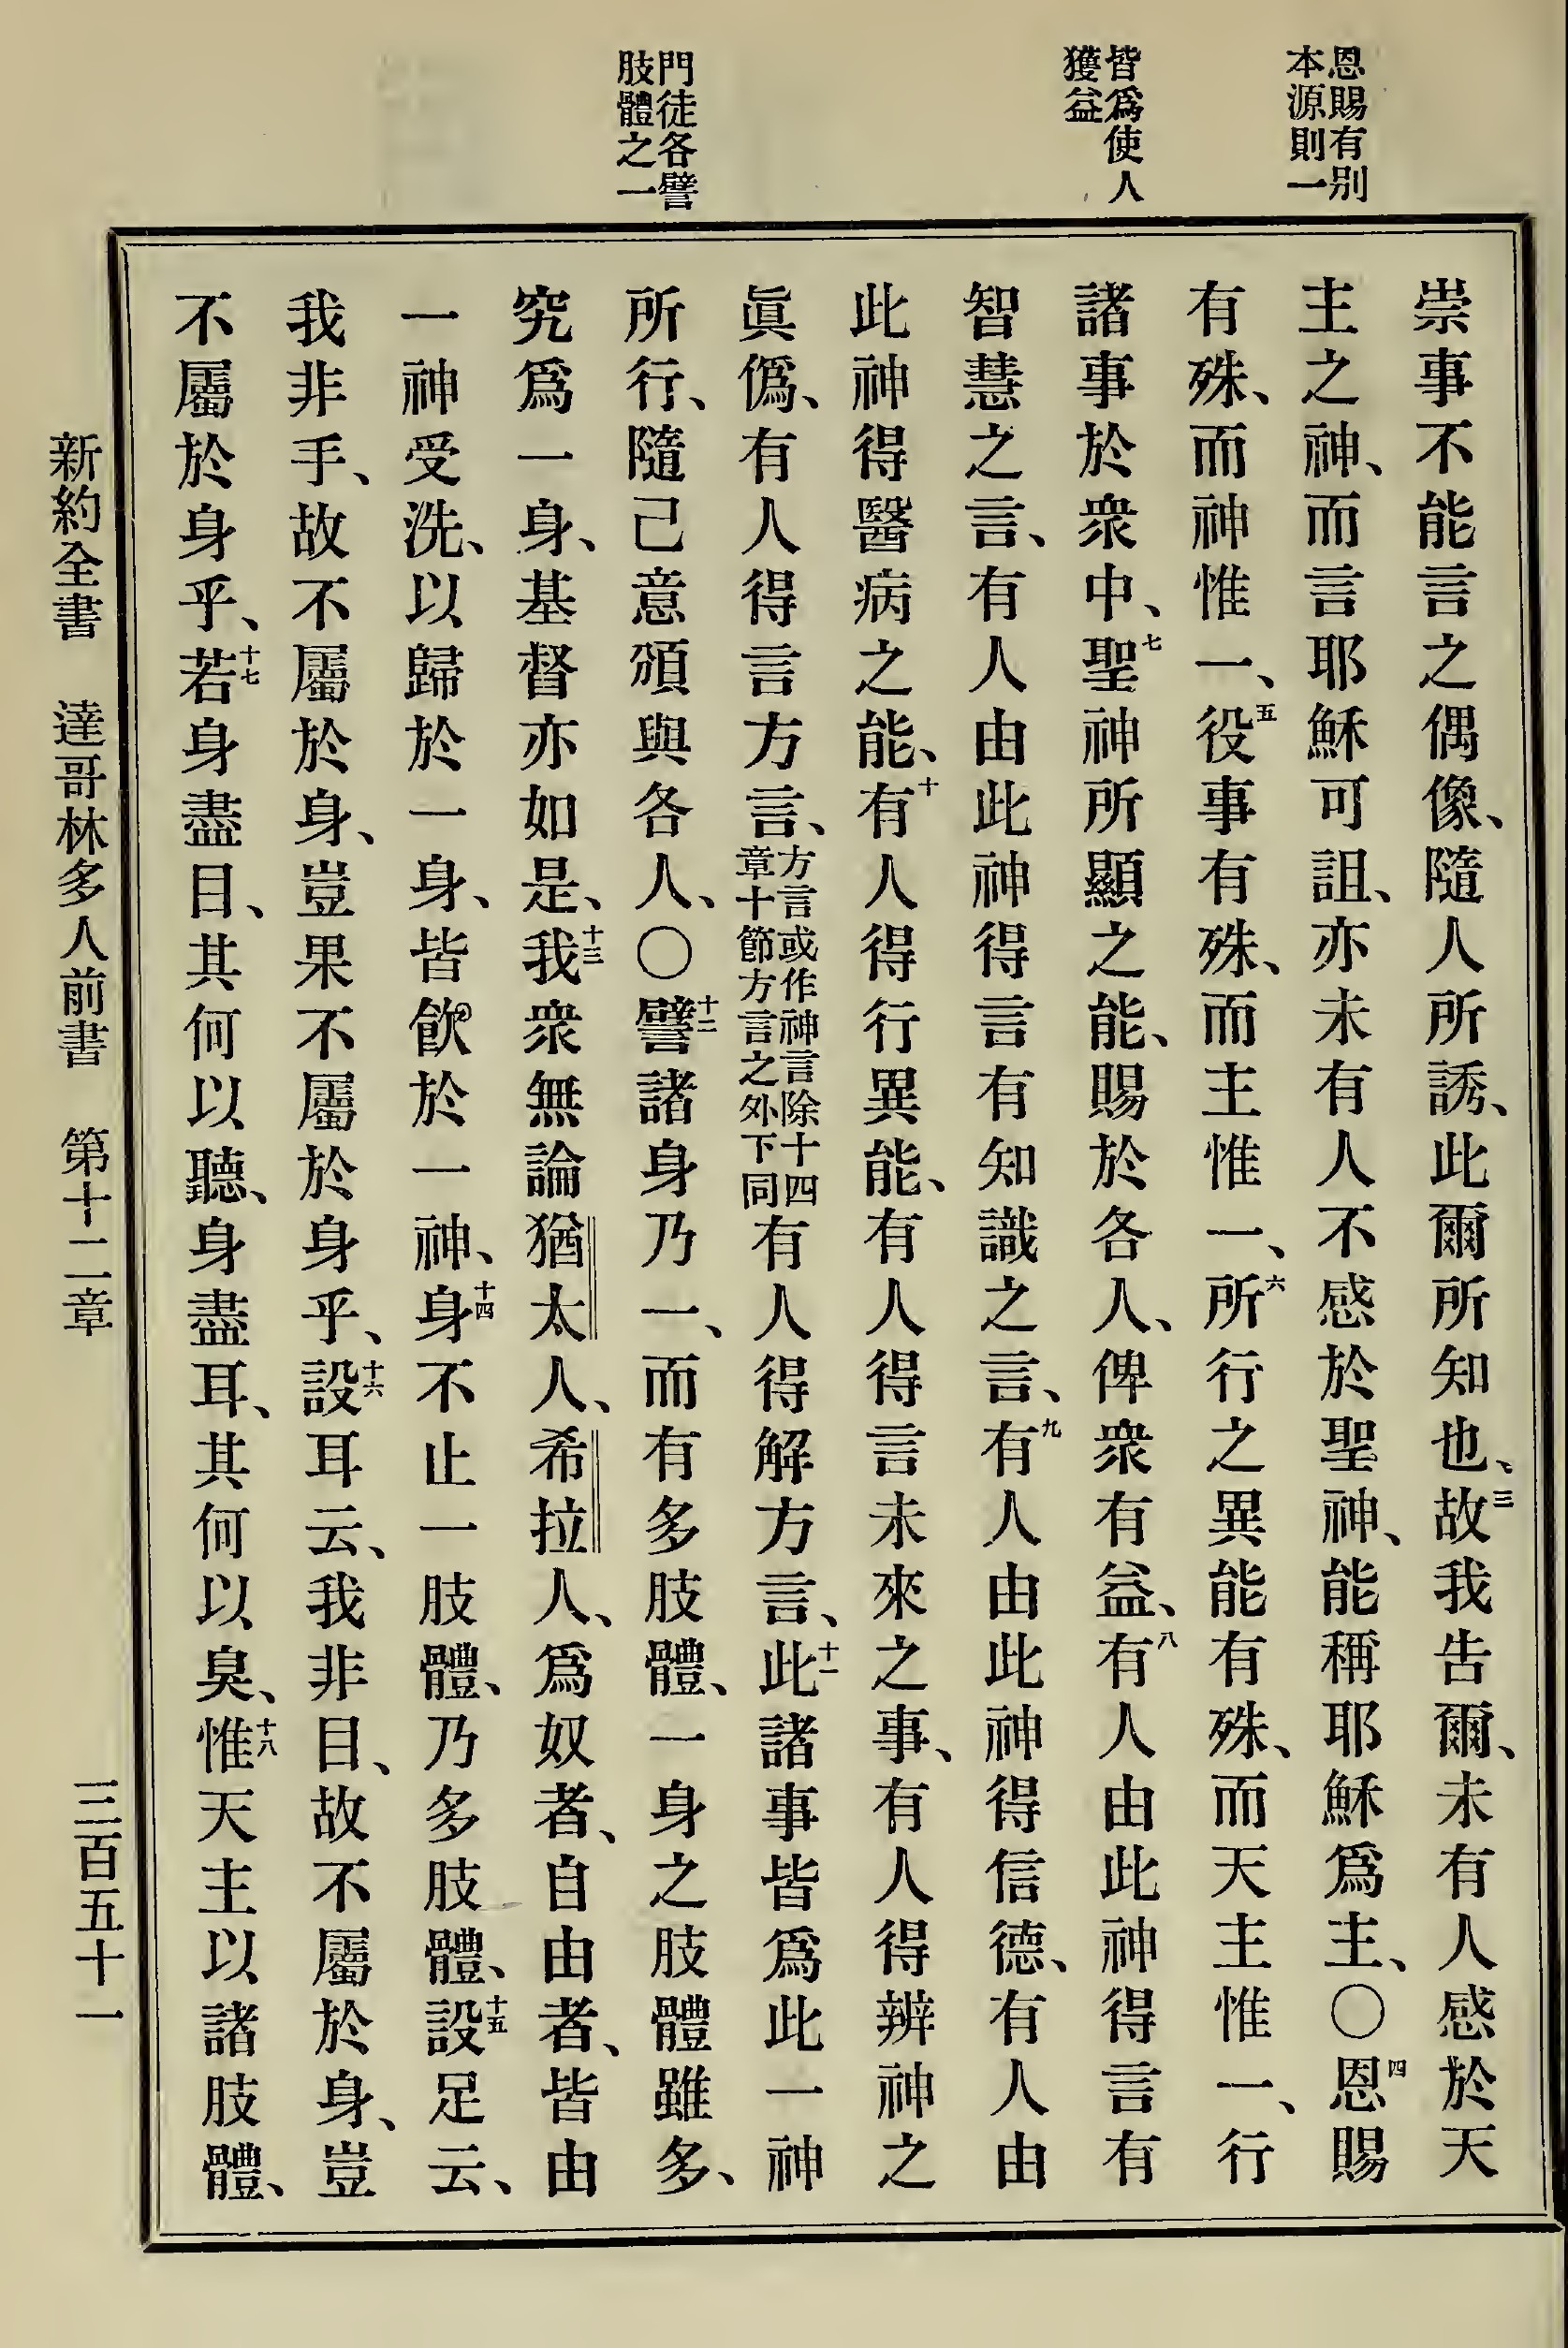 恩賜有別
本源則一
皆爲使人
獲益
門徒各譬
肢體之一
崇事不能言之偶像、隨人所誘、此爾所知也、三故我告爾、未有人感於天
主之神、而言耶穌可詛、亦未有人不感於聖神、能稱耶穌爲主、〇四恩賜
有殊、而神惟一、五役事有殊、而主惟一、六所行之異能有殊、而天主惟一、行
諸事於衆中、七聖神所顯之能、賜於各人、俾衆有益、八有人由此神得言有
智慧之言、有人由此神得言有知識之言、九有人由此神得信德、有人由
此神得醫病之能、十有人得行異能、有人得言未來之事、有人得辨神之
眞僞、有人得言方言、方言或作神言除十四章十節方言之外下同有人得解方言、十一此諸事皆爲此一神
所行、隨己意頒與各人、〇十二譬諸身乃一、而有多肢體、一身之肢體雖多、
究爲一身、基督亦如是、十三我衆無論猶太人、希拉人、爲奴者、自由者、皆由
一神受洗、以歸於一身、皆飮於一神、十四身不止一肢體、乃多肢體、十五設足云、
我非手、故不屬於身、豈果不屬於身乎、十六設耳云、我非目、故不屬於身、豈
不屬於身乎、十七若身盡目、其何以聽、身盡耳、其何以臭、十八惟天主以諸肢體、
新約全書 達哥林多人前書 第十二章 三百五十一